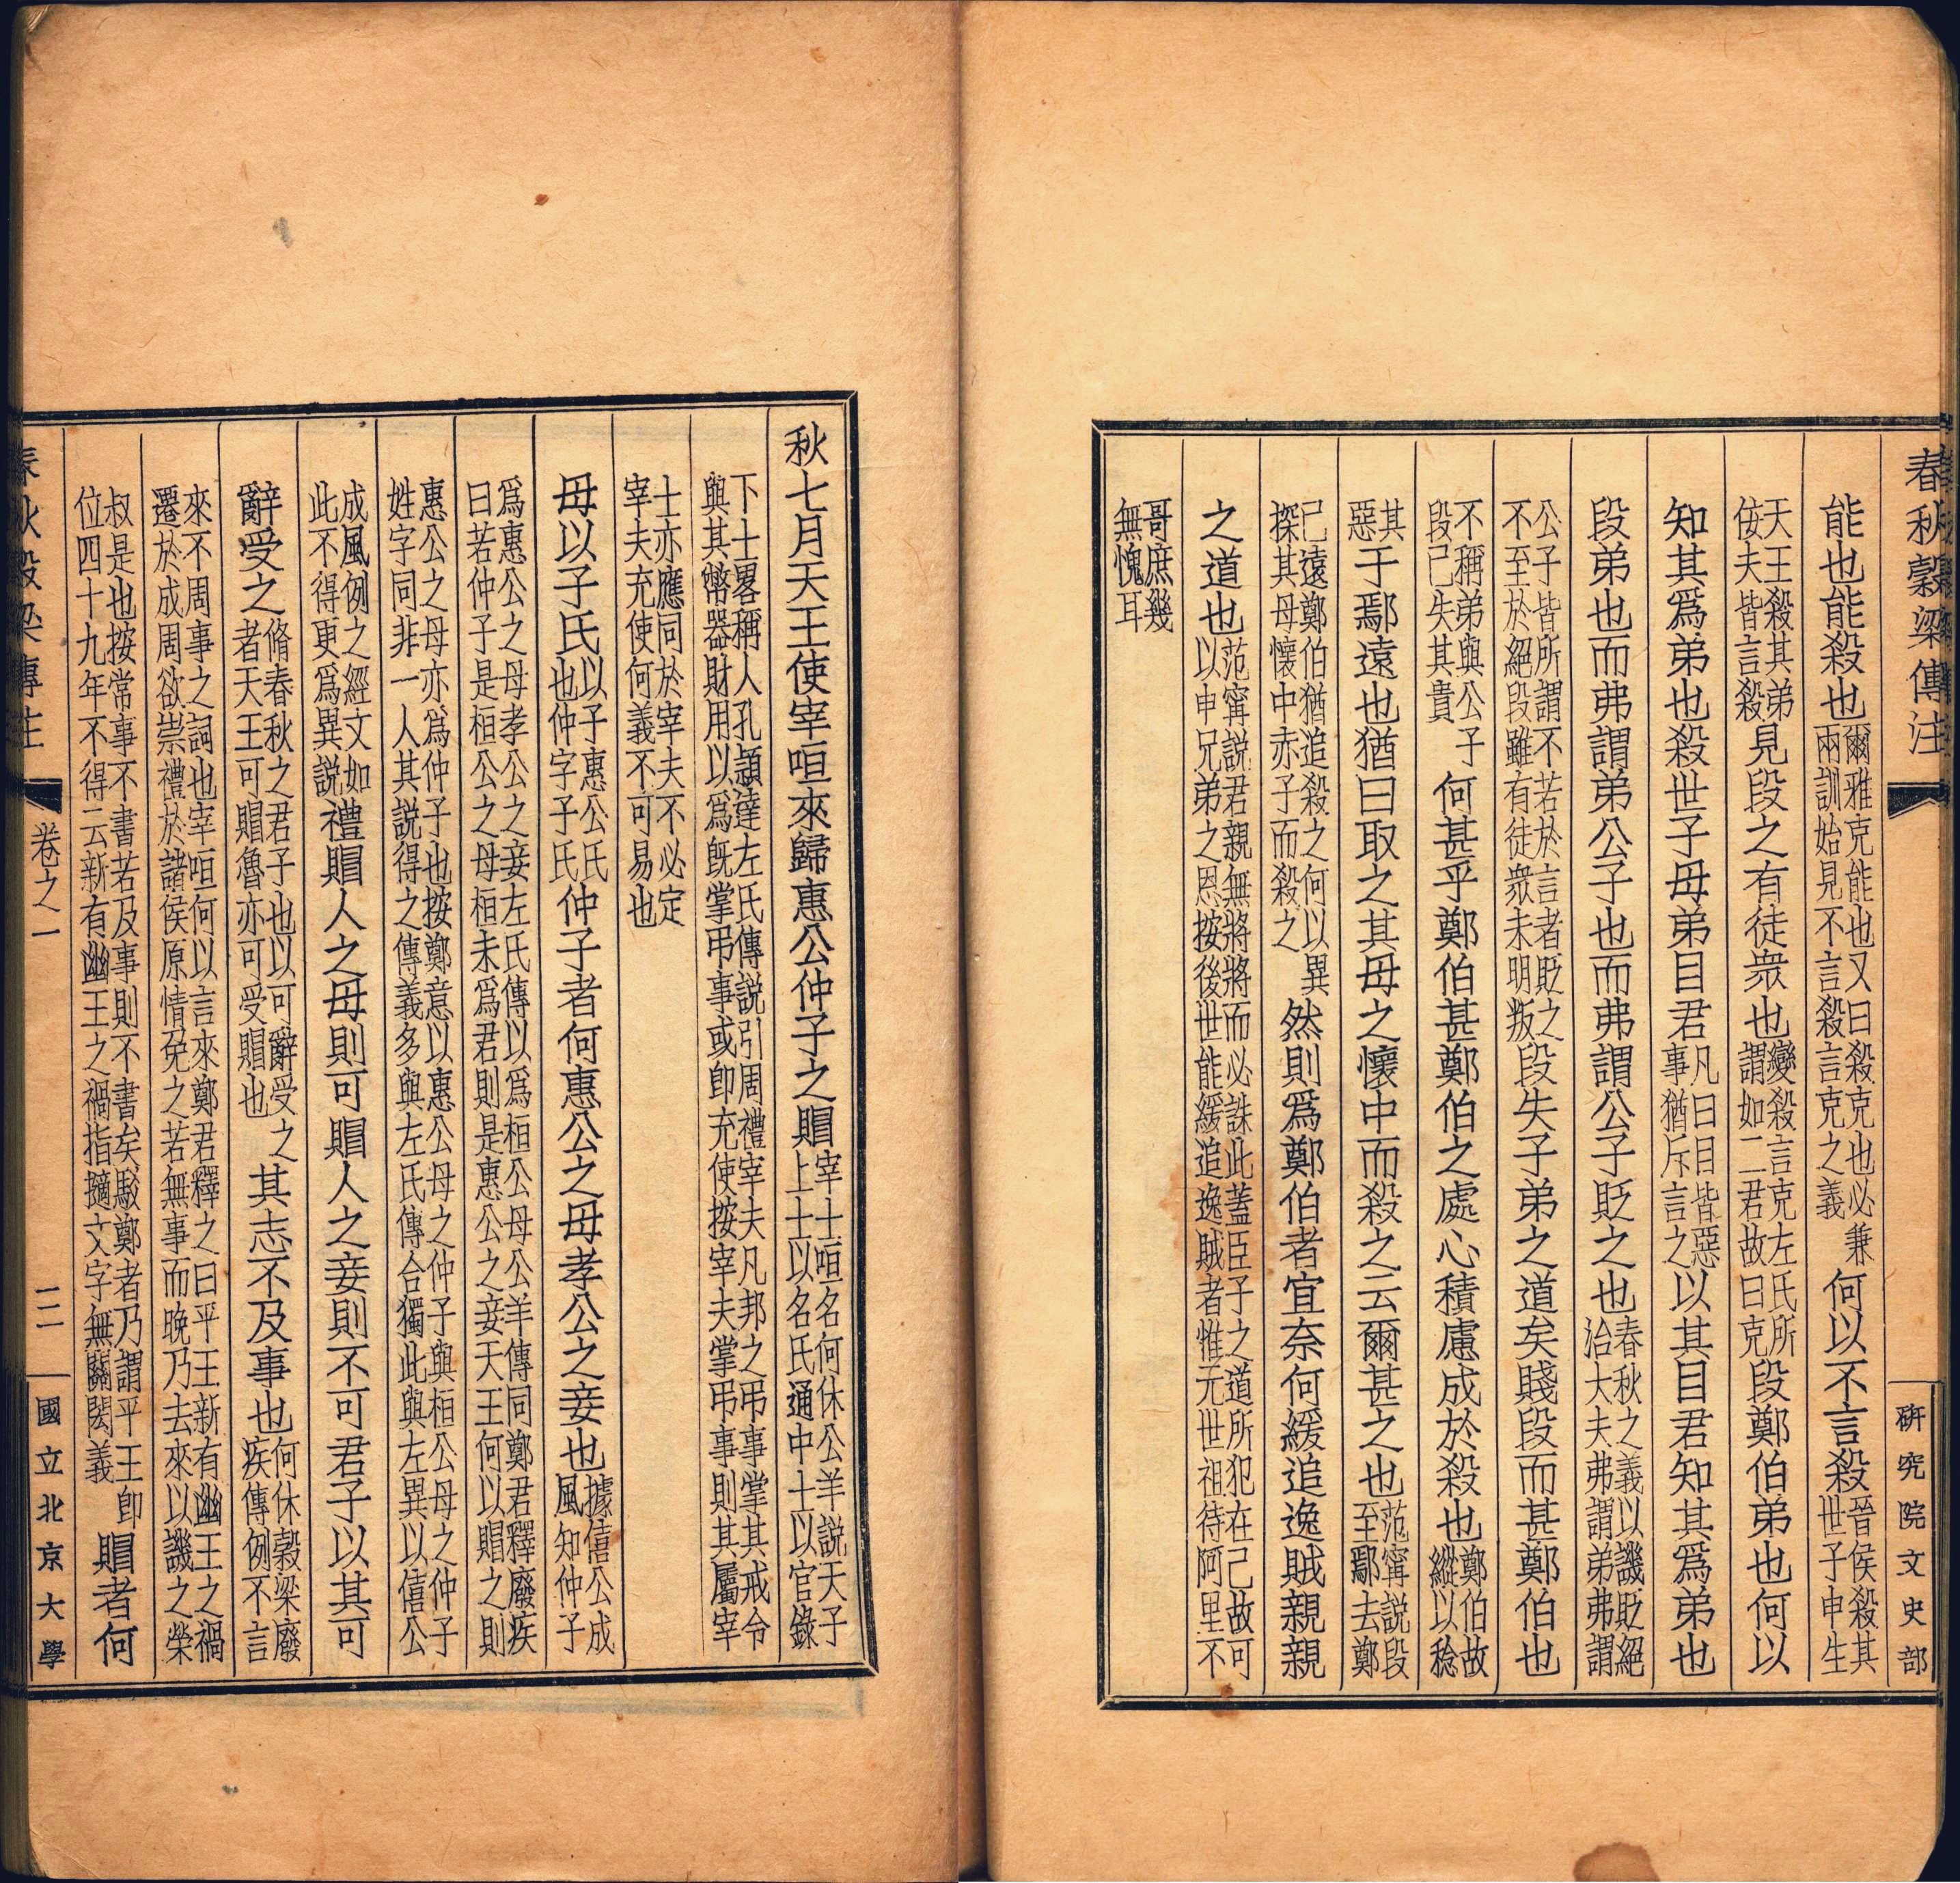 春秋穀梁傳注
研究院文史部
能也能殺也爾雅克能也又曰殺克也必兼
兩訓始見不言殺言克之義何以不言殺晉侯殺其
世子申生
天王殺其弟
佞夫皆言殺見段之有徒衆也變殺言克左氏所
謂如二君故曰克段鄭伯弟也何以
知其爲弟也殺世子母弟目君凡曰目皆惡
事猶斥言之以其目君知其爲弟也
段弟也而弗謂弟公子也而弗謂公子貶之也春秋之義以譏貶絕
治大夫弗謂弟弗謂
公子皆所謂不若於言者貶之
不至於絕段雖有徒衆未明叛段失子弟之道矣賤段而甚鄭伯也
不稱弟與公子
段已失其貴何甚乎鄭伯甚鄭伯之處心積慮成於殺也鄭伯故
縱以稔
其
惡于鄢遠也猶曰取之其母之懷中而殺之云爾甚之也范甯説段
至鄢去鄭
已遠鄭伯猶追殺之何以異
探其母懷中赤子而殺之然則爲鄭伯者宜奈何緩追逸賊親親
之道也范甯説君親無將將而必誅此蓋臣子之道所犯在己故可
以申兄弟之恩按後世能緩追逸賊者惟元世祖待阿里不
哥庶幾
無愧耳
秋七月天王使宰咺來歸惠公仲子之賵宰士咺名何休公羊説天子
上士以名氏通中士以官錄
下士畧稱人孔穎達左氏傳説引周禮宰夫凡邦之弔事掌其戒令
與其幣器財用以爲旣掌弔事或卽充使按宰夫掌弔事則其屬宰
士亦應同於宰夫不必定
宰夫充使何義不可易也
母以子氏以子惠公氏
也仲字子氏仲子者何惠公之母孝公之妾也據僖公成
風知仲子
爲惠公之母孝公之妾左氏傳以爲桓公母公羊傳同鄭君釋廢疾
曰若仲子是桓公之母桓未爲君則是惠公之妾天王何以賵之則
惠公之母亦爲仲子也按鄭意以惠公母之仲子與桓公母之仲子
姓字同非一人其説得之傳義多與左氏傳合獨此與左異以僖公
成風例之經文如
此不得更爲異説禮賵人之母則可賵人之妾則不可君子以其可
辭受之脩春秋之君子也以可辭受之
者天王可賵魯亦可受賵也其志不及事也何休穀梁廢
疾傳例不言
來不周事之詞也宰咺何以言來鄭君釋之曰平王新有幽王之禍
遷於成周欲崇禮於諸侯原情免之若無事而晚乃去來以譏之榮
叔是也按常事不書若及事則不書矣駁鄭者乃謂平王卽
位四十九年不得云新有幽王之禍指擿文字無關閎義賵者何
春秋穀梁傳注
卷之一
二
國立北京大學